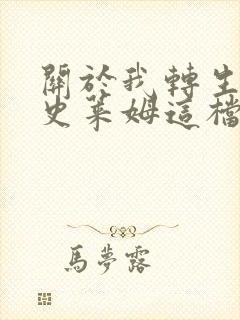 關於我轉生
史萊姆這檔
馬夢露